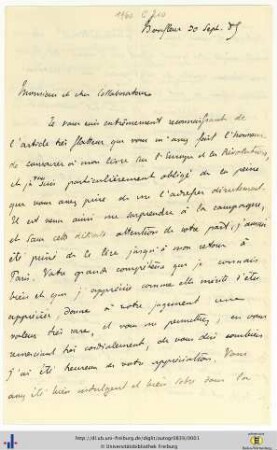 Honfleur 20 Sept. 85
Monsieur et cher collaborateur
Je vous suis extrêmement reconnaissant de
l'article très flatteur que vous m'avez fait l'honneur
de consacrer à mon livre sur l'Europe et la Révolution,
et je vous suis particulièrement obligé de la peine
que vous avez prise de me l'adresser directement.
Il est venu ainsi me surprendre à la campagne,
et sans cette délicate attention de votre part, j'aurais
été privé de le lire jusqu'à mon retour à
Paris. Votre grande compétence que je connais
bien et que j'apprécie comme elle mérite d'être
appréciée, donne à votre jugement une
valeur très rare, et vous me permettrez, en vous
remerciant très cordialement, de vous dire combien
j'ai été heureux de votre appréciation. Vous
avez été bien indulgent et bien sobre dans la
http://dl.ub.uni-freiburg.de/diglit/autogr0839/0001
© Universitätsbibliothek Freiburg